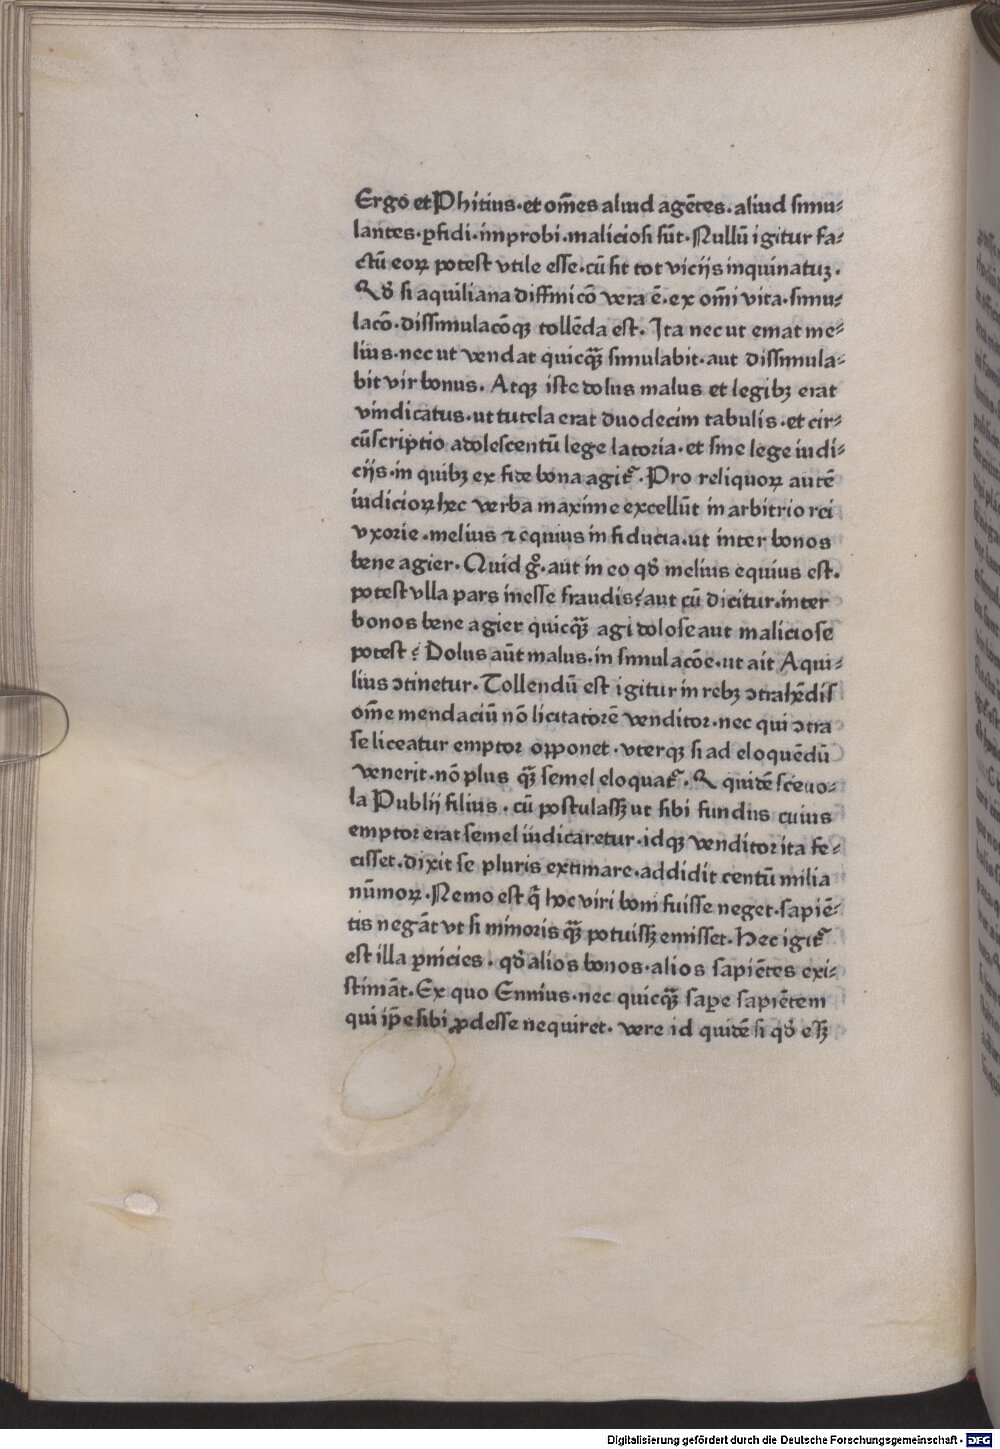 Ergo et Phitius·et om̄es aliud agētes·aliud simu⸗
lantes·ꝑfidi·improbi·maliciosi sūt·Nullū igitur fa⸗
ctū eoꝝ potest vtile esse·cū sit tot vicijs inquinatuꝫ·
Qð si aquiliana diffinicō vera ē·ex om̄i vita·simu⸗
lacō·dissimulacōqꝫ tollēda est· Ita nec ut emat me⸗
lius·nec ut vendat quicqꝫ̄ simulabit·aut dissimula⸗
bit vir bonus· Atqꝫ iste dolus malus et legibꝫ erat
vindicatus·ut tutela erat duodecim tabulis·et cir⸗
cūscriptio adolescentū lege latoria·et sine lege iudi⸗
cijs·in quibꝫ ex fide bona agit᷑·Pro reliquoꝝ autē
iudicioꝝ hec verba maxime excellūt in arbitrio rei
vxorie·melius ⁊ equius in fiducia·ut inter bonos
bene agier·Quid gͦ·aut in eo qð melius equius est·
potest vlla pars inesse fraudis?aut cū dicitur·inter
bonos bene agier quicqꝫ̄ agi dolose aut maliciose
potest? Dolus aūt malus·in simulacōe·ut ait Aqui⸗
lius ↄtinetur·Tollendū est igitur in rebꝫ ↄtrahēdis
om̄e mendaciū nō licitatorē venditor·nec qui ↄtra
se liceatur emptor opponet·vterqꝫ si ad eloquēdū
venerit·nō plus qꝫ̄ semel eloquat᷑·Q quidē sceuo⸗
la Publij filius·cū postulassꝫ ut sibi fundus cuius
emptor erat semel iudicaretur·idqꝫ venditor ita fe⸗
cisset·dixit se pluris extimare·addidit centū milia
nūmoꝝ·Nemo est q̄ hoc viri boni fuisse neget·sapiē⸗
tis negāt vt si minoris qꝫ̄ potuissꝫ emisset·Hec igit᷑
est illa ꝑnicies·qð alios bonos·alios sapiētes exi⸗
stimāt·Ex quo Ennius·nec quicqꝫ̄ sape sapiētem
qui ip̄e sibi ꝓdesse nequiret·vere id quidē si qð essꝫ
Digitalisierung gefördert durch die Deutsche Forschungsgemeinschaft - DFG